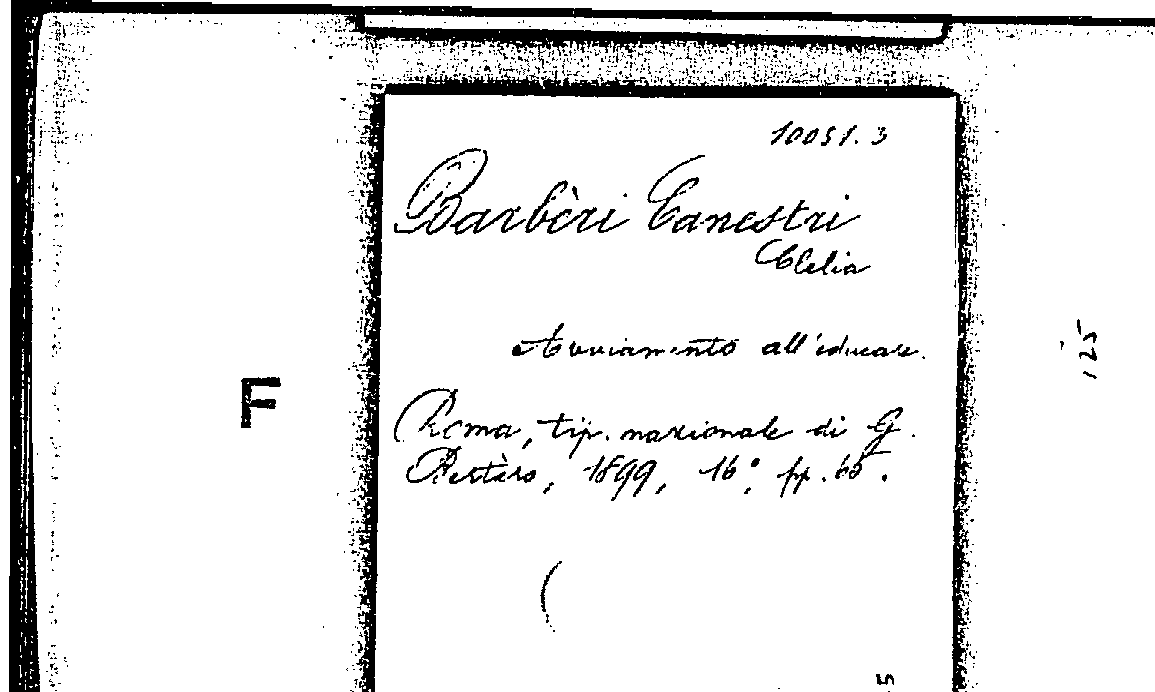 10051.3
Barbèri Canestri
Clelia
Avviamento all'educare.
F
125
Roma, tip. nazionale di G.
Bertèro, 1899, 16°, pp. 65.
5